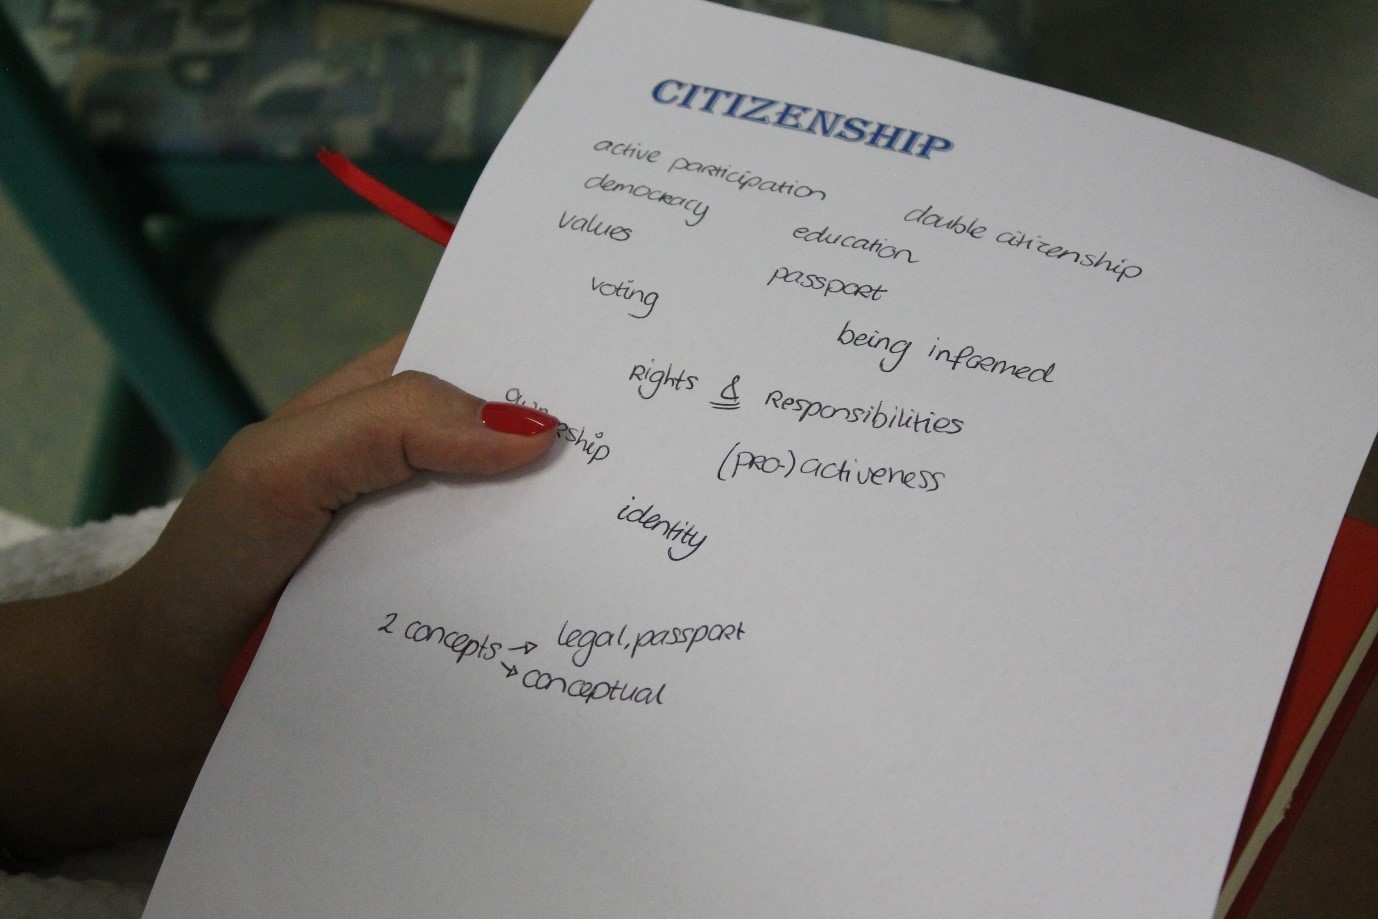 CITIZENSHIP
active participation
double citizenship
democracy
education
values
passport
voting
being informed
Rights & Responsibilities
(PRO-) activeness
identity
2 concepts → legal, passport
→ conceptual